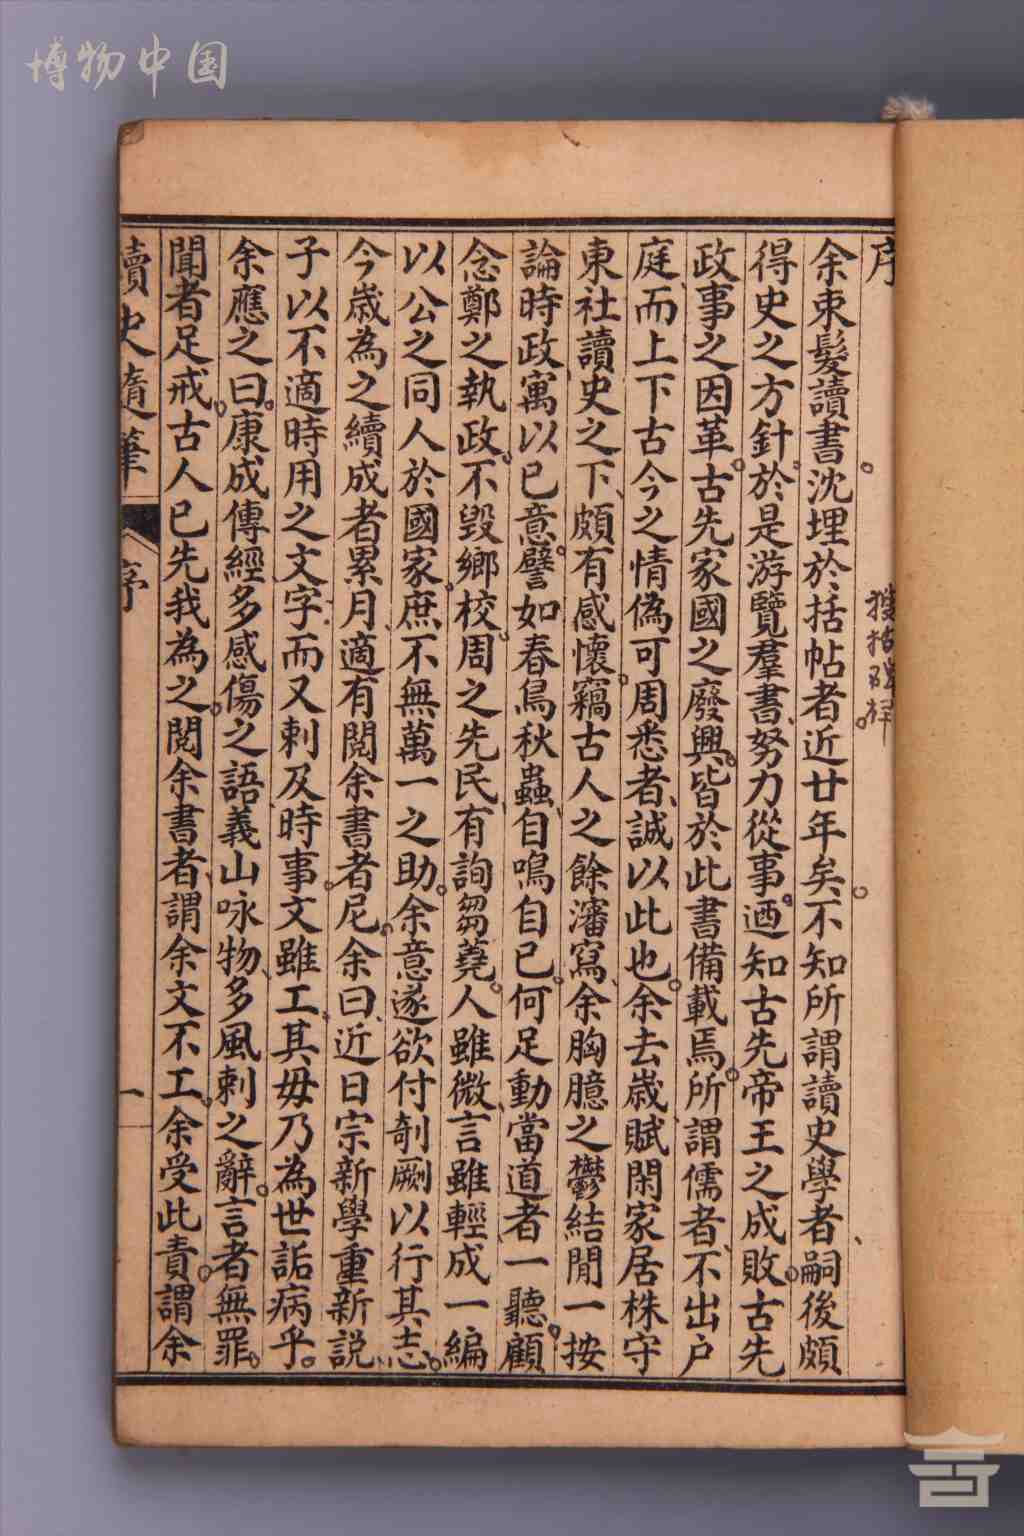 博物中国
序
余束髮讀書。沈埋於括帖者近廿年矣。不知所謂讀史學者、嗣後頗
得史之方針、於是游覽羣書、努力從事。迺知古先帝王之成敗。古先
政事之因革。古先家國之廢興。皆於此書備載焉。所謂儒者、不出户
庭、而上下古今之情偽可周悉者、誠以此也。余去歲賦閑家居株守
東社讀史之下、頗有感懷。竊古人之餘瀋、寫余胸臆之鬱結間一按
論時政、寓以已意。譬如春鳥秋蟲、自鳴自已。何足動當道者一聽。顧
念鄭之執政。不毁鄉校。周之先民有詢芻蕘。人雖微、言雖輕成一編
以公之同人於國家。庶不無萬一之助。余意遂欲付剞劂以行其志。
今歲為之續成者累月、適有閱余書者尼。余曰、近日宗新學重新説、
子以不適時用之文字、而又刺及時事。文雖工、其毋乃為世詬病乎。
余應之曰。康成傳經多感傷之語義山咏物、多風刺之辭。言者無罪。
聞者足戒。古人已先我為之。閱余書者、謂余文不工。余受此責。謂余
讀史隨筆
序
一